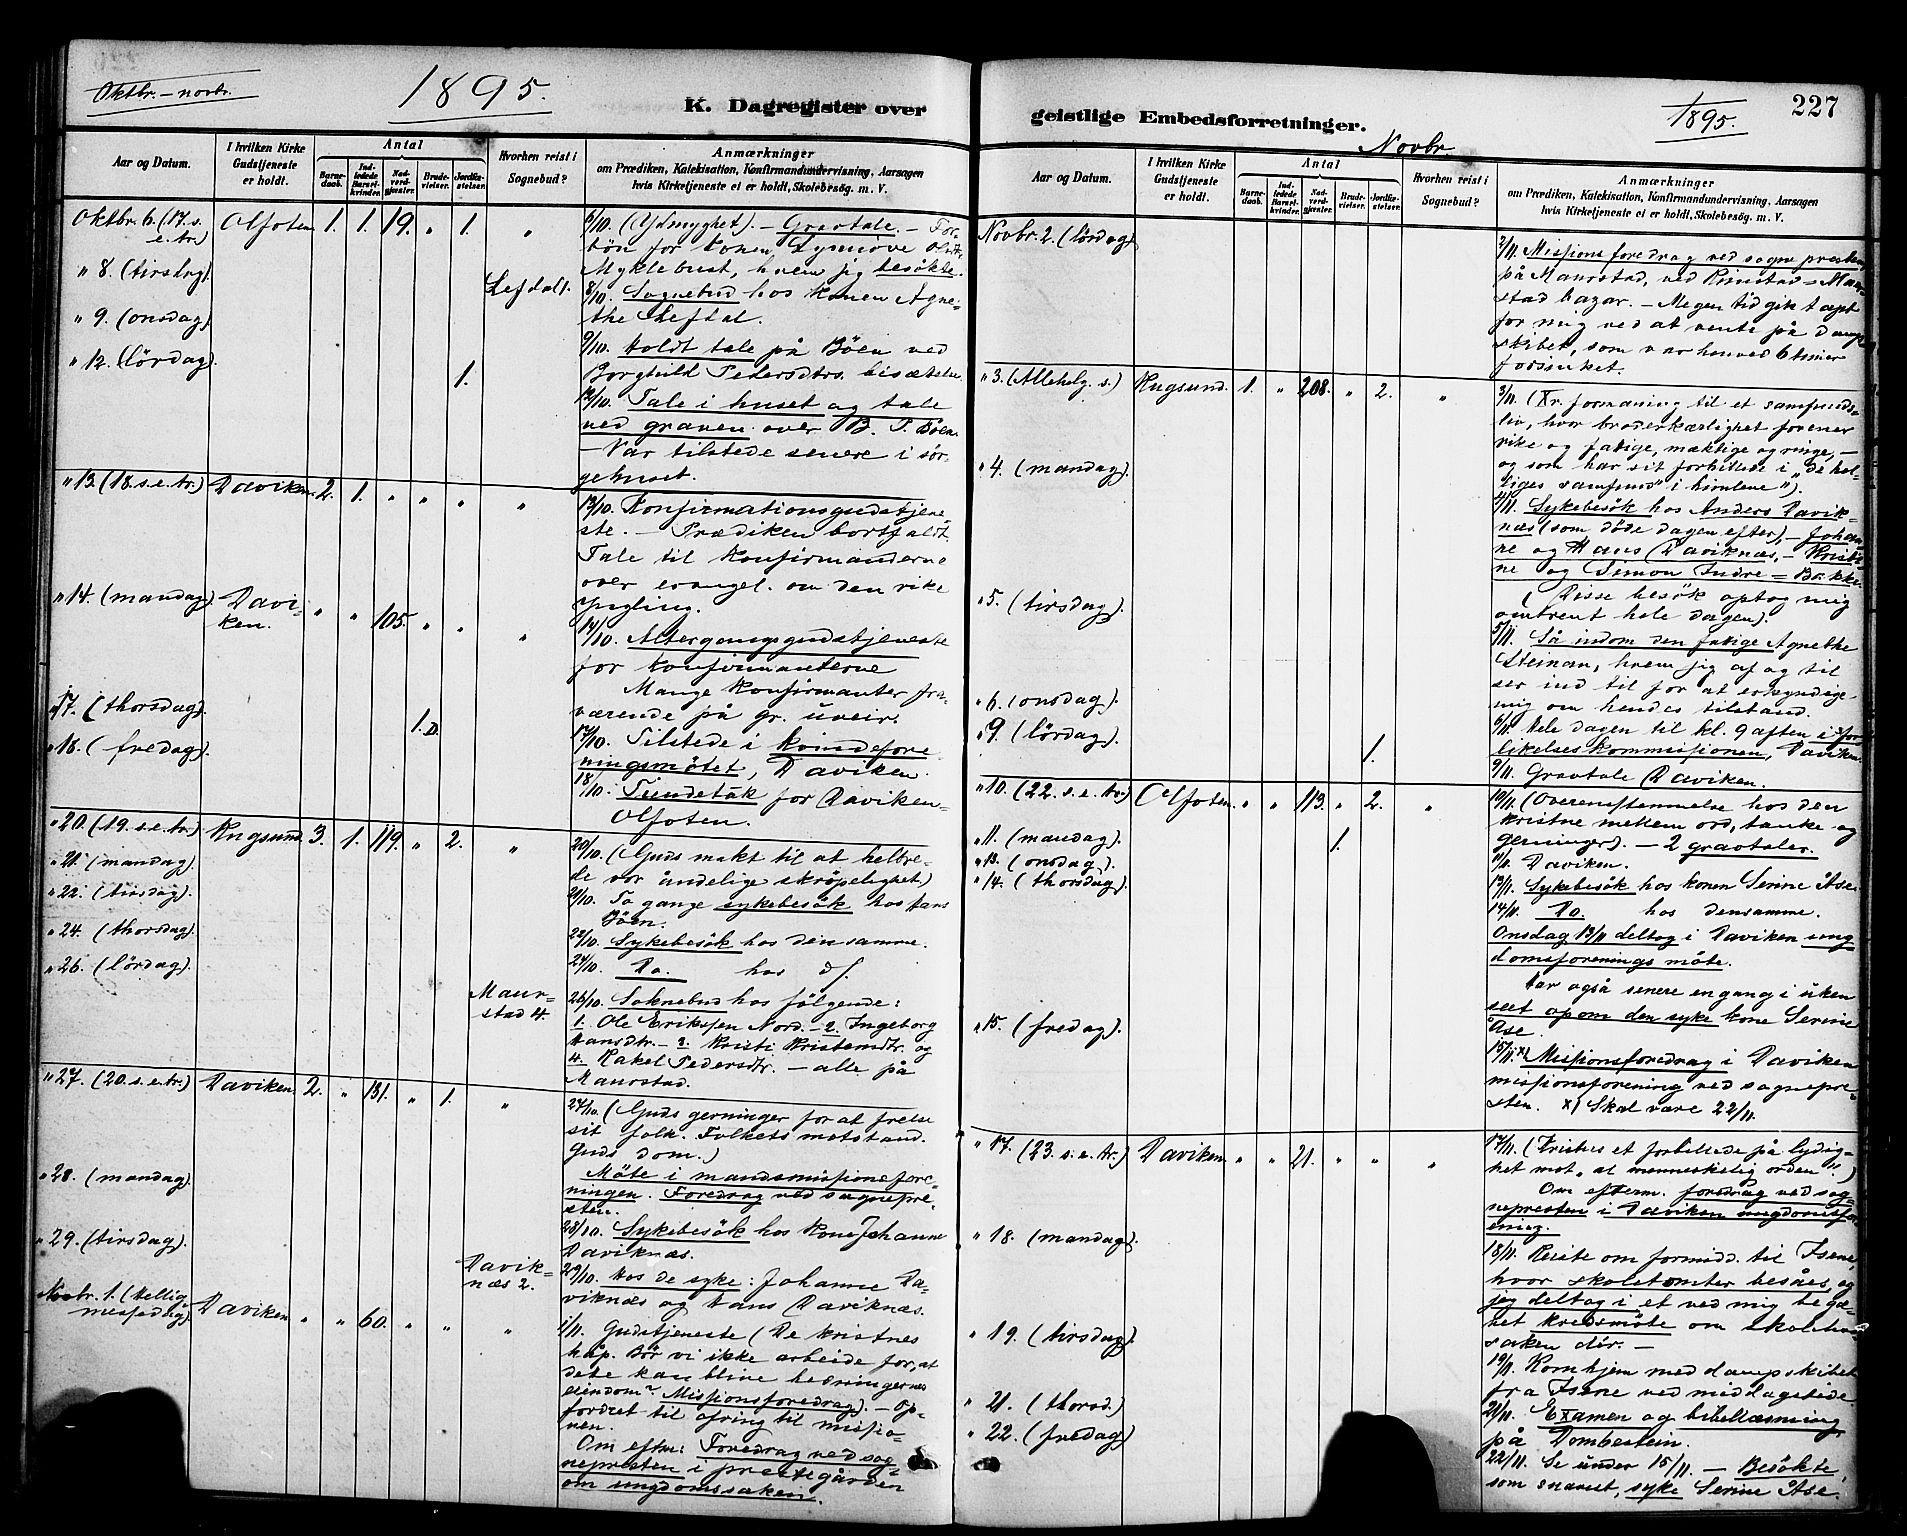 Oktbr. – novbr.
1895.
K. Dagregister over
Aar og Datum.
I hvilken Kirke
Gudstjeneste
er holdt.
Antal
Barne-
daab.
Ind-
ledede
Barsel-
kvinder.
Nad-
verd-
gjæster.
Brude-
vielser.
Jordfæ-
stelser.
Hvorhen reist i
Sognebud?
Anmærkninger
om Prædiken, Katekisation, Konfirmandundervisning, Aarsagen
hvis Kirketjeneste ei er holdt, Skolebesøg. m. V.
Oktbr. 6. (17. s.
e. tr.)
Olfoten
1. 1. 19. " 1. "
6/10. (Ydmyghet). – Gravtale. – For-
bön for konen Synnöve Olsdtr.
Myklebust, hvem jeg besökte.
" 8. (tirsdag).
Lefdal 1.
8/10. Sognebud hos konen Agne-
the Lefdal.
" 9. (onsdag)
9/10. Holdt tale på Böen ved
Borghild Petersdtrs. bisættelse.
" 12. (lördag)
1.
12/10. Tale i huset og tale
ved graven over B. P. Böen.
– Var tilstede senere i sör-
gehuset.
" 13. (18. s. e. tr.) Daviken 2. 1. " " " "
13/10. Konfirmationsgudstjene-
ste. – Prædiken bortfaldt.
Tale til konfirmanderne
over evangel. om den rike
yngling.
" 14. (mandag) Davi-
ken. " " 105. " " "
14/10. Altergangsgudstjeneste
for konfirmanterne
Mange konfirmanter fra-
værende på gr. uveir.
" 17. (thorsdag).
1. D.
17/10. Tilstede i kvindefore
ningsmötet, Daviken.
" 18. (fredag).
18/10. Tiendetåk for Daviken-
Olfoten.
" 20. (19. s. e. tr.) Rugsund 3. 1. 119. " 2. "
20/10. (Guds makt til at helbre-
de vor åndelige skröpelighet)
" 21. (mandag).
21/10. To gange sykebesök hos Hans
Böen.
" 22. (tirsdag)
22/10. Sykebesök hos densamme.
" 24. (thorsdag).
24/10. Do. hos ds.
" 26. (lördag).
Maur-
stad 4.
26/10. Soknebud hos fölgende:
1. Ole Eriksen Nord. – 2. Ingeborg
Hansdtr. – 3. Kristi Kristensdtr. og
4. Rakel Pedersdtr. – alle på
Maurstad.
" 27. (20. s. e. tr.) Daviken 2. " 131. " 1. "
27/10. (Guds gerninger for at frelse
sit folk. Folkets motstand.
Guds dom.)
Möte i mandsmissionsfore-
ningen. Foredrag ved sognepre-
sten.
" 28. (mandag).
28/10. Sykebesök hos kone Johanne
Daviknæs.
" 29. (tirsdag).
Davik-
næs 2.
29/10. Hos de syke: Johanne Da-
viknæs og Hans Daviknæs.
Novbr. 1. (hellig
messedag). Daviken " " 60. " " "
1/11. Gudstjeneste (De kristnes
håp. Bör vi ikke arbeide for, at
dete kan blive hedningernes
eiendom? Missionsforedrag). – Op-
fordret til ofring til missio-
nen.
Om eftm: Foredrag ved sog-
nepresten i prestegården
om ungdomssaken.
geistlige Embedsforretninger.
Novbr.
1895.
227
Aar og Datum.
I hvilken Kirke
Gudstjeneste
er holdt.
Antal
Barne-
daab.
Ind-
ledede
Barsel-
kvinder.
Nad-
verd-
gjæster.
Brude-
vielser.
Jordfæ-
stelser.
Hvorhen reist i
Sognebud?
Anmærkninger
om Prædiken, Katekisation, Konfirmandundervisning, Aarsagen
hvis Kirketjeneste ei er holdt, Skolebesøg, m. V.
Novbr. 2. (lördag)
2/11. Missionsforedrag ved sognepresten
på Maurstad, ved Rimstad – Maur-
stad bazar. – Megen tid gik tapt
for mig ved at vente på damp
skibet, som var henved 6 timer
forsinket.
" 3. (Allehelg. s.) Rugsund. 1. " 208. " 2. "
3/11. (Kr. formaning til et samfunds-
liv, hvor broderkærlighet forener
rike og fatige, mæktige og ringe, –
og som har sit forbillede i "de hel-
liges samfund" i himlene").
" 4. (mandag).
4/11. Sykebesök hos Anders Davik-
næs (som döde dagen efter), – Johan-
ne og Hans Daviknæs, – Kristi-
ne og Simon Indre = Bakke
(Disse besök optog mig
omtrent hele dagen).
" 5. (tirsdag).
5/11. Så indom den fatige Agnethe
Steinan, hvem jeg af og til
ser ind til for at erkyndige
mig om hendes tilstand.
" 6. (onsdag).
6/11. Hele dagen til kl. 9 aften i for-
likelseskommissionen, Daviken.
" 9. (lördag).
1.
9/11. Gravtale Daviken.
" 10. (22. s. e. tr.) Olfoten " " 113. " 2. "
10/11. (Overensstemmelse hos den
kristne mellem ord, tanke og
gerninger). – 2 gravtaler.
" 11. (mandag).
1.
11/11. Daviken.
" 13. (onsdag).
13/11. Sykebesök hos konen Serine Åse.
" 14. (thorsdag).
14/11. Do. hos densamme.
Onsdag 13/11 deltog i Daviken ung
domsforenings möte.
Har også senere en gang i uken
seet op om den syke kone Serine
Åse.
" 15. (fredag).
15/11. x) Missionsforedrag i Daviken
missionsforening ved sognepre-
sten. x) Skal være 22/11.
" 17. (23. s. e. tr.) Daviken " " 21. " " "
17/11. (Kristus et forbillede på lydig-
het mot "al menneskelig orden".)
Om efterm. foredrag ved sog-
nepresten i Daviken ungdomsfor-
ening.
" 18. (mandag).
18/11. Reiste om formidd. til Isene,
hvor skoletomter besåes, og
jeg deltog i et ved mig begæ-
ret kredsmöte om skolehus
saken dér. –
" 19. (tirsdag).
19/11. Kom hjem med dampskibet
fra Isene ved middagstide
" 21. (thorsd.)
21/11. Examen og bibellæsning
på Dombestein.
" 22. (fredag)
22/11. Se under 15/11. – Besökte,
som snarest, syke Serine Åse.